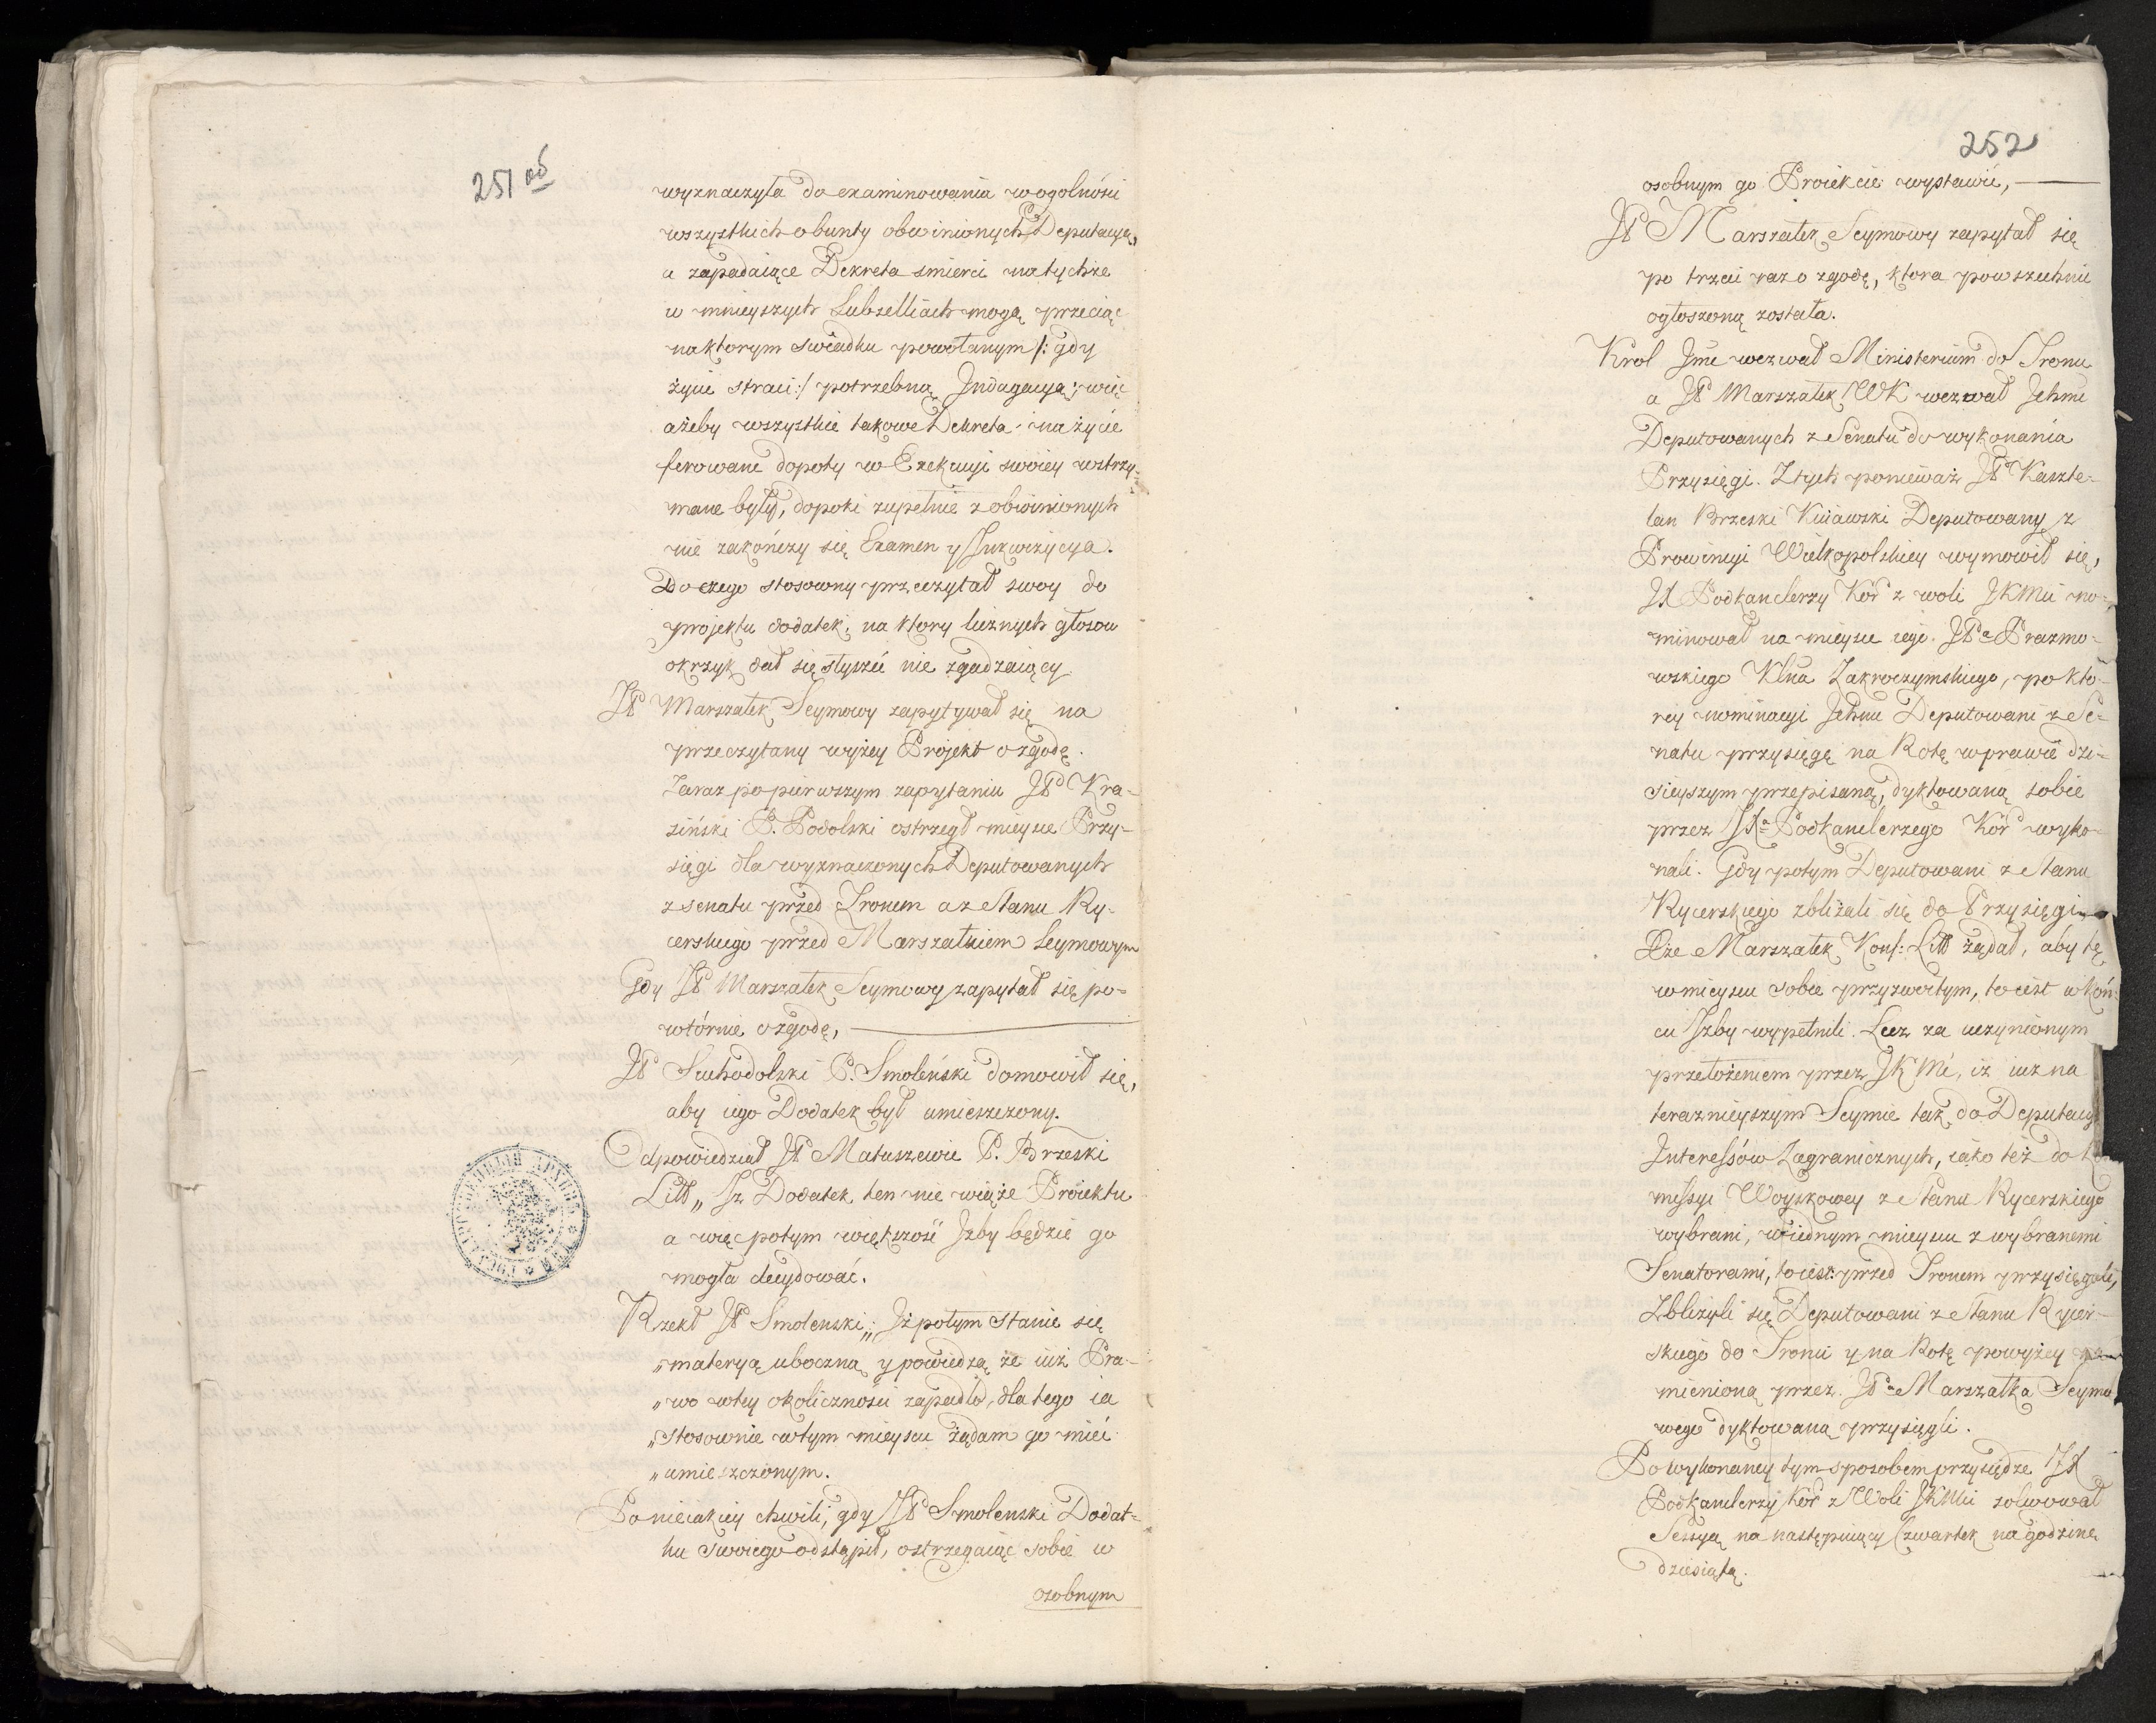 251 об
wyznaczyła do examinowania w ogolności
wszystkich o bunty obwinionych Deputacyą,
a zapadaiące Dekreta smierci na tychże
w mnieyszych Subselliach mogą przeciąć
na ktorym swiadku powołanym /: gdy
życie straci :/ potrzebną Indagacyą; więc
ażeby wszystkie takowe Dekreta na życie
ferowane dopoty w Exekucyi swoiey wstrzy-
mane były, dopoki zupełnie z obwinionych
nie zakończy się Examen y Inkwizycya.
Do czego stosowny przeczytał swoy do
projektu dodatek; na ktory licznych głosow
okrzyk dał się słyszeć nie zgadzaiący
JP Marszałek Seymowy zapytywał się na
przeczytany wyżey Projekt o zgodę.
Zaraz po pierwszym zapytaniu JP Kra-
siński P. Podolski ostrzegł mieysce Przy-
sięgi dla wyznaczonych Deputowanych
z senatu przed Tronem a z Stanu Ry-
cerskiego przed Marszałkiem Seymowym
Gdy JP Marszałek Seymowy zapytał się po-
wtórnie o zgodę,
JP Suchodolski P. Smoleński domowił się,
aby iego Dodatek był umieszczony.
Odpowiedział JP Matuszewic P. Brzeski
Litt „ Iż Dodatek ten nie wiąże Proiektu
a więc potym większość Izby będzie go
mogła decydować.
Rzekł JP Smolenski „ Iż potym stanie się
„ materyą uboczną y powiedzą że iuż Pra-
„ wo w tey okoliczności zapadło, dla tego ia
„ stosownie w tym mieyscu żądam go mieć
„ umieszczonym.
Po nieiakiey chwili, gdy JP Smolenski Dodat-
ku swoiego odstąpił, ostrzegaiąc sobie w
osobnym
252
osobnym go Proiekcie wystawić,
JP Marszałek Seymowy zapytał się
po trzeci raz o zgodę, ktora powszechnie
ogłoszoną została.
Krol Jmć wezwał Ministerium do Tronu
a JP Marszałek WK wezwał Ichmć
Deputowanych z Senatu do wykonania
Przysięgi. Z tych ponieważ JP Kaszte-
lan Brzeski Kuiawski Deputowany z
Prowincyi Wielkopolskiey wymowił się,
JX Podkanclerzy Kor z woli JKMci no-
minował na mieysce iego JPa Prazmo-
wskiego Klna Zakroczymskiego, po kto-
rey nominacyi Ichmć Deputowani z Se-
natu przysięgę na Rotę w prawie dzi-
sieyszym przepisaną, dyktowaną sobie
przez JXa Podkanclerzego Kor wyko-
nali. Gdy potym Deputowani z Stanu
Rycerskiego zbliżali się do Przysięgi
Xże Marszałek Konf: Litt żądał, aby tę
w mieyscu sobie przyzwoitym, to iest w koń-
cu Izby wypełnili. Lecz za uczynionym
przełożeniem przez JKMć, iż iuż na
teraznieyszym Seymie tak do Deputacyi
Interessów Zagranicznych, iako też do Ko
missyi Woyskowey z Stanu Rycerskiego
wybrani, w iednym mieyscu z wybranemi
Senatorami, to iest: przed Tronem przysięgali,
Zbliżyli się Deputowani z Stanu Rycer-
skiego do Tronu y na Rotę powyżey
mienioną przez JPa Marszałka Seymo
wego dyktowaną przysięgli.
Po wykonaney tym sposobem przysiędze JX
Podkanclerzy Kor z Woli JKMci solwował
Sessyą na następuiący Czwartek na godzinę
dziesiątą.